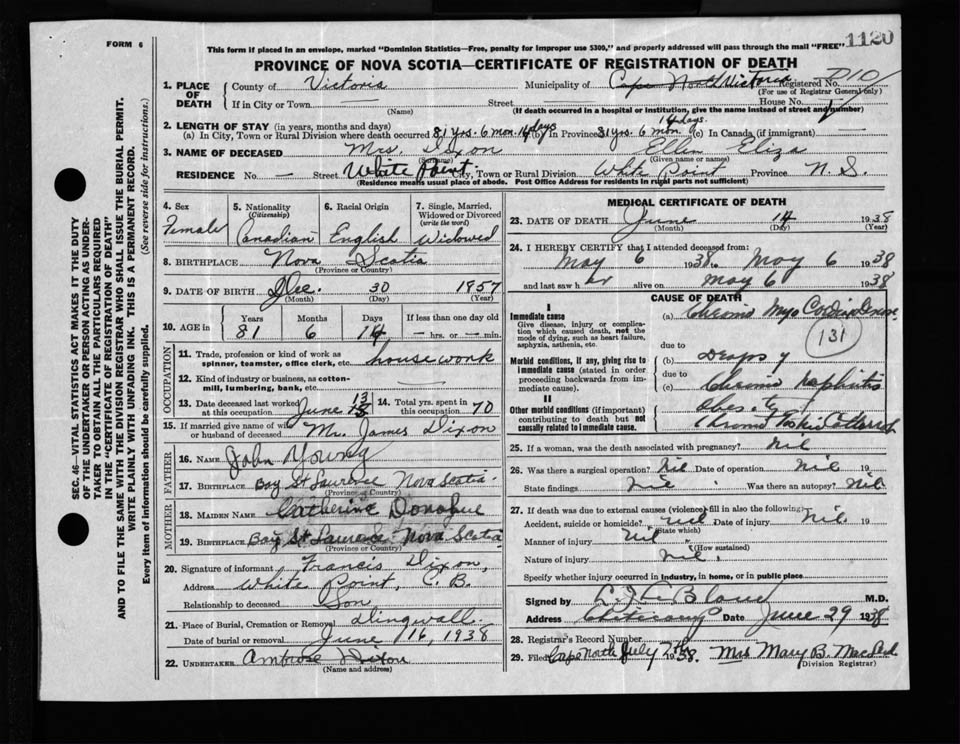 FORM 6
This form if placed in an envelope, marked "Dominion Statistics—Free, penalty for improper use $300," and properly addressed will pass through the mail "FREE"
1120
PROVINCE OF NOVA SCOTIA—CERTIFICATE OF REGISTRATION OF DEATH
1. PLACE OF DEATH
County of Victoria
Municipality of Cape North Victoria
Registered No. D10
(For use of Registrar General only)
If in City or Town —
(Name)
Street
House No.
(If death occurred in a hospital or institution, give the name instead of street and number)
2. LENGTH OF STAY (in years, months and days)
(a) In City, Town or Rural Division where death occurred 81 yrs. 6 mon. 14 days (b) in Province 81 yrs. 6 mon. 14 days. (c) In Canada (if immigrant) —
3. NAME OF DECEASED Mrs. Dixon Ellen Eliza
(Surname) (Given name or names)
RESIDENCE No. — Street White Point. City, Town or Rural Division White Point Province N. S.
(Residence means usual place of abode. Post Office Address for residents in rural parts not sufficient)
4. Sex
Female
5. Nationality (Citizenship)
Canadian
6. Racial Origin
English
7. Single, Married, Widowed or Divorced (write the word)
Widowed
8. BIRTHPLACE Nova Scotia
(Province or Country)
9. DATE OF BIRTH Dec. 30 1857
(Month) (Day) (Year)
10. AGE in
Years Months Days If less than one day old
81 6 14 — hrs. or — min.
OCCUPATION
11. Trade, profession or kind of work as spinner, teamster, office clerk, etc. housework
12. Kind of industry or business, as cotton-mill, lumbering, bank, etc. —
13. Date deceased last worked at this occupation June 13
14. Total yrs. spent in this occupation 70
15. If married give name of wife or husband of deceased Mr. James Dixon
FATHER
16. NAME John Young
17. BIRTHPLACE Bay St Lawrence Nova Scotia
(Province or Country)
MOTHER
18. MAIDEN NAME Catherine Donahue
19. BIRTHPLACE Bay St Lawrence Nova Scotia
(Province or Country)
20. Signature of informant Francis Dixon,
Address White Point, C. B.
Relationship to deceased Son
21. Place of Burial, Cremation or Removal Dingwall
Date of burial or removal June 16, 1938
22. UNDERTAKER Ambrose Dixon
(Name and address)
MEDICAL CERTIFICATE OF DEATH
23. DATE OF DEATH June 14 1938
(Month) (Day) (Year)
24. I HEREBY CERTIFY that I attended deceased from:
May 6 1938 to May 6 1938
and last saw her alive on May 6 1938
CAUSE OF DEATH
I
Immediate cause
Give disease, injury or complication which caused death, not the mode of dying, such as heart failure, asphyxia, asthenia, etc.
(a) Chronic Myo
131
due to
Morbid conditions, if any, giving rise to immediate cause (stated in order proceeding backwards from immediate cause).
(b) Dropsy
due to
(c) Chronic Nephritis
II
Other morbid conditions (if important) contributing to death but not causally related to immediate cause.
Obesity
Chronic
25. If a woman, was the death associated with pregnancy? nil
26. Was there a surgical operation? Nil Date of operation nil 19
State findings nil Was there an autopsy? Nil
27. If death was due to external causes (violence) fill in also the following:
Accident, suicide or homicide? nil Date of injury nil. 19
(State which)
Manner of injury Nil
(How sustained)
Nature of injury nil.
Specify whether injury occurred in Industry, in home, or in public place
Signed by M.D.
Address Date June 29 1938
28. Registrar's Record Number
29. Filed Cape North July 1938. Mrs Mary B.
Division Registrar)
SEC. 46—VITAL STATISTICS ACT MAKES IT THE DUTY
OF THE UNDERTAKER OR PERSON ACTING AS UNDER-
TAKER TO OBTAIN ALL THE PARTICULARS REQUIRED
IN THE "CERTIFICATE OF REGISTRATION OF DEATH"
AND TO FILE THE SAME WITH THE DIVISION REGISTRAR WHO SHALL ISSUE THE BURIAL PERMIT.
WRITE PLAINLY WITH UNFADING INK. THIS IS A PERMANENT RECORD.
Every item of information should be carefully supplied. (See reverse side for instructions.)